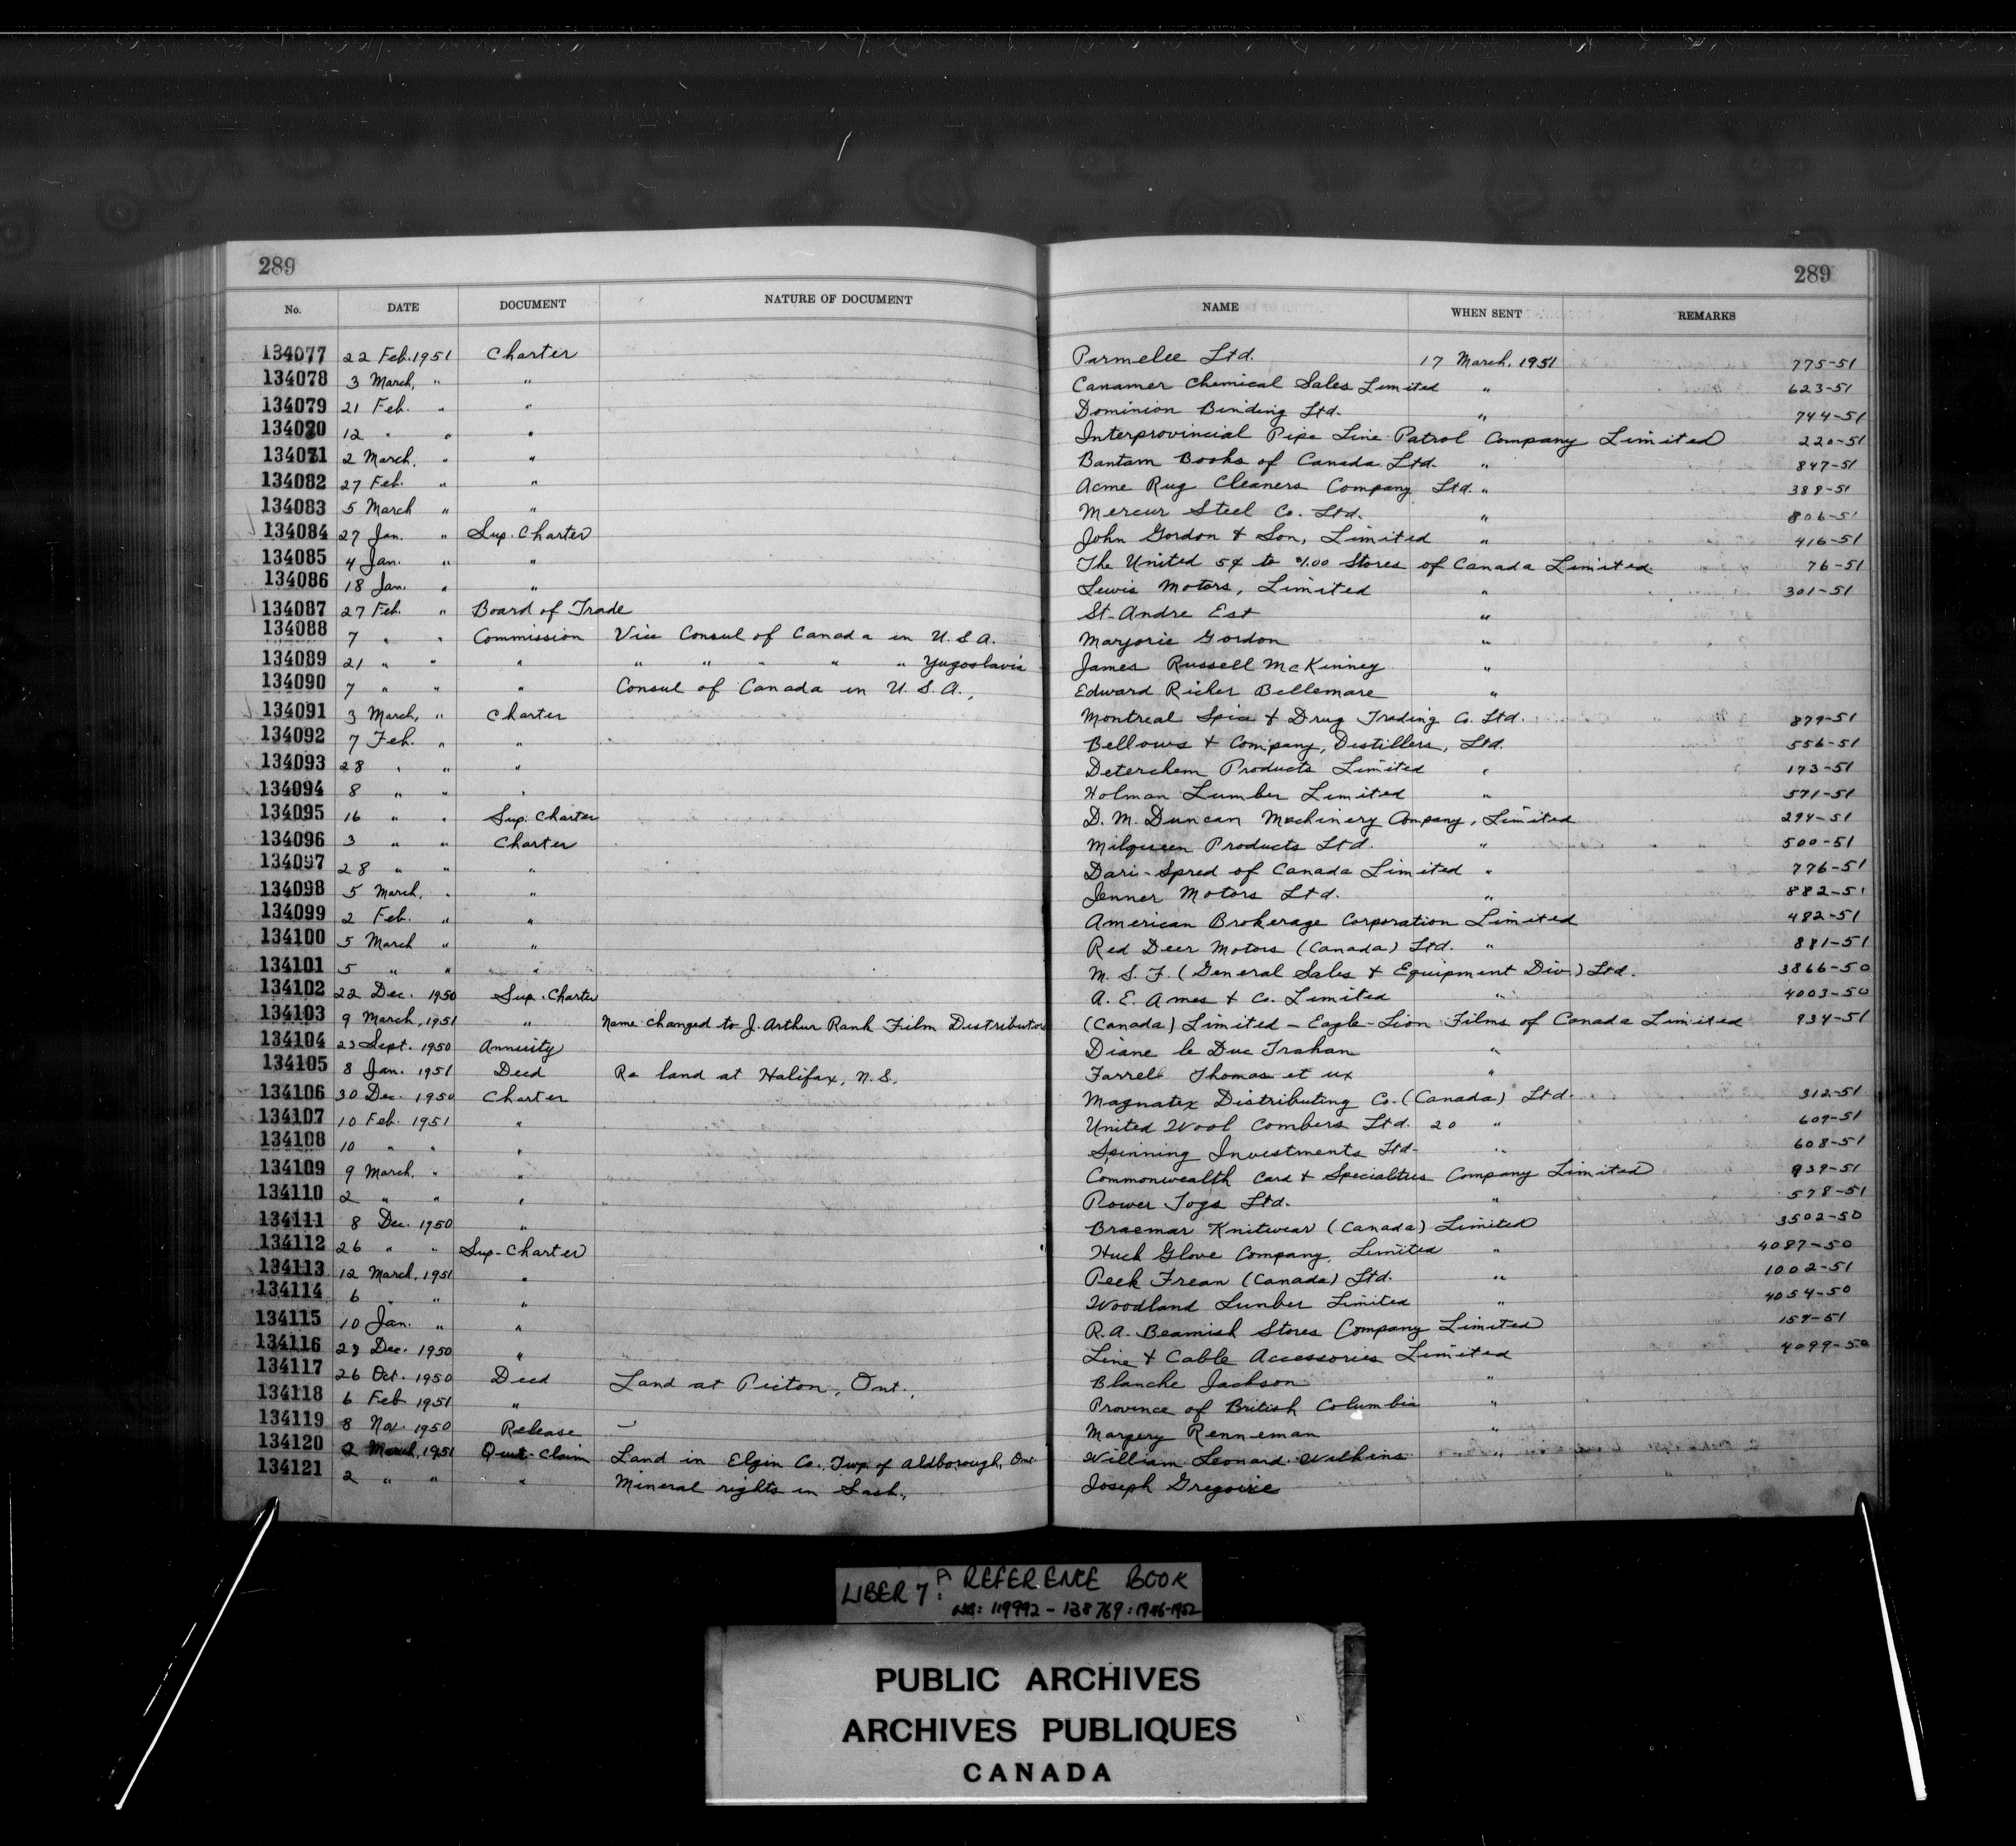 289 289
No. DATE DOCUMENT NATURE OF DOCUMENT NAME WHEN SENT REMARKS
134077 22 Feb. 1951 Charter Parmelee Ltd. 17 March, 1951 775-51
134078 3 March, " " Canamer Chemical Sales Limited " 623-51
134079 21 Feb. " " Dominion Binding Ltd. " 744-51
134080 12 " " " Interprovincial Pipe Line Patrol Company Limited 220-51
134081 2 March, " " Bantam Books of Canada Ltd. " 847-51
134082 27 Feb. " " Acme Rug Cleaners Company Ltd. " 388-51
134083 5 March " " Mercur Steel Co. Ltd. " 806-51
134084 27 Jan. " Sup. Charter John Gordon & Son, Limited " 416-51
134085 4 Jan. " " The United 5¢ to $1.00 Stores of Canada Limited 76-51
134086 18 Jan. " " Lewis Motors, Limited " 301-51
134087 27 Feb. " Board of Trade St-Andre Est "
134088 7 " " Commission Vice Consul of Canada in U.S.A. Marjorie Gordon "
134089 21 " " " " " " " " Yugoslavia James Russell McKinney "
134090 7 " " " Consul of Canada in U.S.A., Edward Richer Bellemare "
134091 3 March, " Charter Montreal Spice & Drug Trading Co. Ltd. 879-51
134092 7 Feb. " " Bellows & Company, Distillers, Ltd. 556-51
134093 28 " " " Deterchem Products Limited " 173-51
134094 8 " " " Holman Lumber Limited " 571-51
134095 16 " " Sup. Charter D. M. Duncan Machinery Company, Limited 294-51
134096 3 " " Charter Milqueen Products Ltd. " 500-51
134097 28 " " " Dari-Spred of Canada Limited " 776-51
134098 5 March, " " Jenner Motors Ltd. " 882-51
134099 2 Feb. " " American Brokerage Corporation Limited 482-51
134100 5 March " " Red Deer Motors (Canada) Ltd. " 881-51
134101 5 " " " M. S. F. (General Sales & Equipment Div.) Ltd. 3866-50
134102 22 Dec. 1950 Sup. Charter A. E. Ames & Co. Limited " 4003-50
134103 9 March, 1951 " Name changed to J. Arthur Rank Film Distributors (Canada) Limited - Eagle-Lion Films of Canada Limited 934-51
134104 23 Sept. 1950 Annuity Diane le Duc Trahan "
134105 8 Jan. 1951 Deed Re land at Halifax, N.S., Farrell Thomas et ux "
134106 30 Dec. 1950 Charter Magnatex Distributing Co. (Canada) Ltd. 312-51
134107 10 Feb. 1951 " United Wool Combers Ltd. 20 " 609-51
134108 10 " " " Spinning Investments Ltd. " 608-51
134109 9 March, " " Commonwealth Card & Specialties Company Limited 939-51
134110 2 " " " Power Togs Ltd. " 578-51
134111 8 Dec. 1950 " Braemar Knitwear (Canada) Limited 3502-50
134112 26 " " Sup-Charter Huck Glove Company, Limited " 4087-50
134113 12 March, 1951 " Peek Frean (Canada) Ltd. " 1002-51
134114 6 " " " Woodland Lumber Limited " 4054-50
134115 10 Jan. " " R.A. Beamish Stores Company Limited 159-51
134116 28 Dec. 1950 " Line & Cable Accessories Limited 4099-50
134117 26 Oct. 1950 Deed Land at Picton, Ont., Blanche Jackson "
134118 6 Feb 1951 " Province of British Columbia "
134119 8 Nov. 1950 Release — Margery Renneman "
134120 2 March, 1951 Quit-Claim Land in Elgin Co., Twp. of Aldborough, Ont. William Leonard Wilkins "
134121 2 " " " Mineral rights in Sask., Joseph Gregoire
LIBER 7: A REFERENCE BOOK
NO: 119992 - 138769: 1946-1952
PUBLIC ARCHIVES
ARCHIVES PUBLIQUES
CANADA